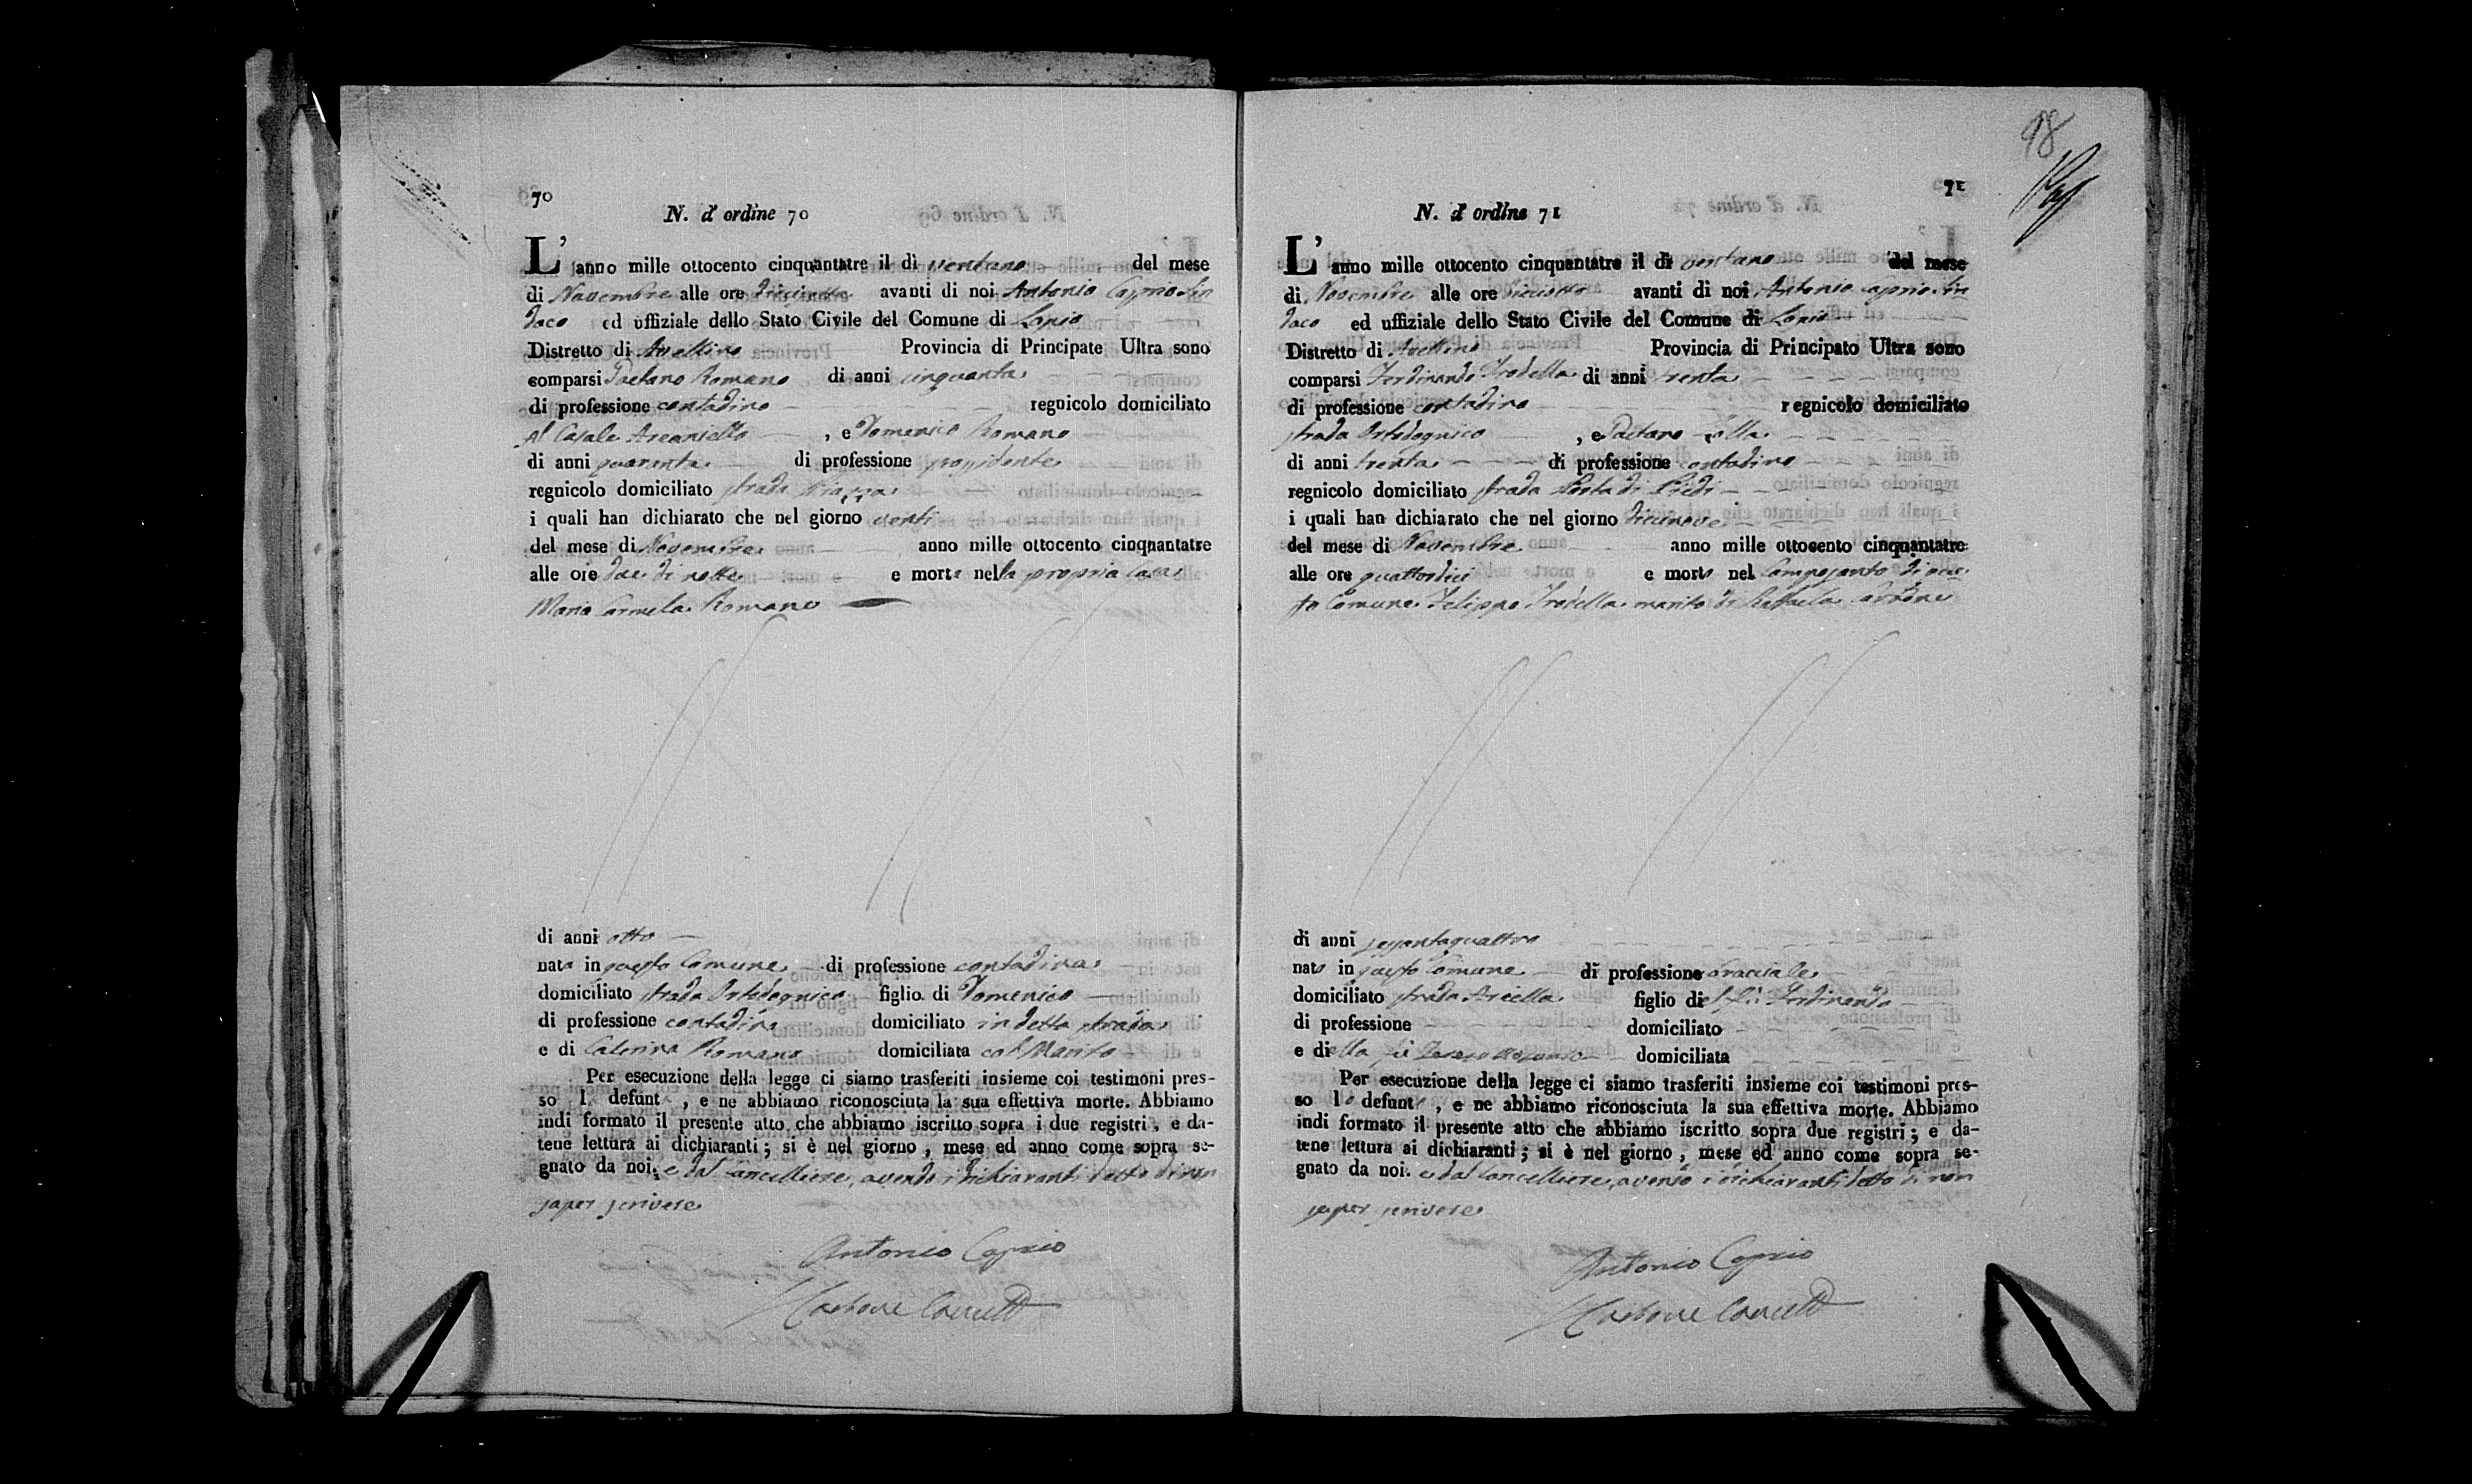 70
N. d' ordine 70
L' anno mille ottocento cinquantatre il dì ventuno del mese
di Novembre alle ore diciasette avanti di noi Antonio Caprio Sin
daco ed uffiziale dello Stato Civile del Comune di Lapio
Distretto di Avellino Provincia di Principate Ultra sono
comparsi Gaetano Romano di anni cinquanta
di professione contadino regnicolo domiciliato
al Casale Arcaniello , e Domenico Romano
di anni quaranta di professione possidente
regnicolo domiciliato strada Piazza
i quali han dichiarato che nel giorno venti
del mese di Novembre anno mille ottocento cinquantatre
alle ore due di notte e morta nella propria casa
Maria Carmela Romano
di anni otto
nata in questo Comune di professione contadina
domiciliato strada Ortodognico figlio di Domenico
di professione contadino domiciliato in detta strada
e di Caterina Romano domiciliata col Marito
Per esecuzione della legge ci siamo trasferiti insieme coi testimoni pres-
so l defunt , e ne abbiamo riconosciuta la sua effettiva morte. Abbiamo
indi formato il presente atto che abbiamo iscritto sopra i due registri, e da-
tene lettura ai dichiaranti; si è nel giorno, mese ed anno come sopra se-
gnato da noi, e dal Cancelliere, avendo i dichiaranti detto di non
saper scrivere
Antonio Caprio
98
71
N. d' ordine 71
L' anno mille ottocento cinquantatre il dì ventuno del mese
di Novembre alle ore avanti di noi Antonio Caprio Sin
daco ed uffiziale dello Stato Civile del Comune di Lapio
Distretto di Avellino Provincia di Principato Ultra sono
comparsi Ferdinando Trodella di anni trenta
di professione contadino regnicolo domiciliato
strada Ortodognico , e Gaetano
di anni trenta di professione contadino
regnicolo domiciliato strada Porta di Piedi
i quali han dichiarato che nel giorno diciannove
del mese di Novembre anno mille ottocento cinquantatre
alle ore quattordici e morto nel Camposanto di que
sto Comune Felippo Trodella marito di Raffaela
di anni sessantaquattro
nato in questo Comune di professione bracciale
domiciliato strada Ariella figlio del fù Ferdinando
di professione domiciliato
e della fù domiciliata
Per esecuzione della legge ci siamo trasferiti insieme coi testimoni pres-
so lo defunto , e ne abbiamo riconosciuta la sua effettiva morte. Abbiamo
indi formato il presente atto che abbiamo iscritto sopra due registri; e da-
tene lettura ai dichiaranti; si è nel giorno, mese ed anno come sopra se-
gnato da noi. e dal Cancelliere, avendo i dichiaranti detto di non
saper scrivere
Antonio Caprio